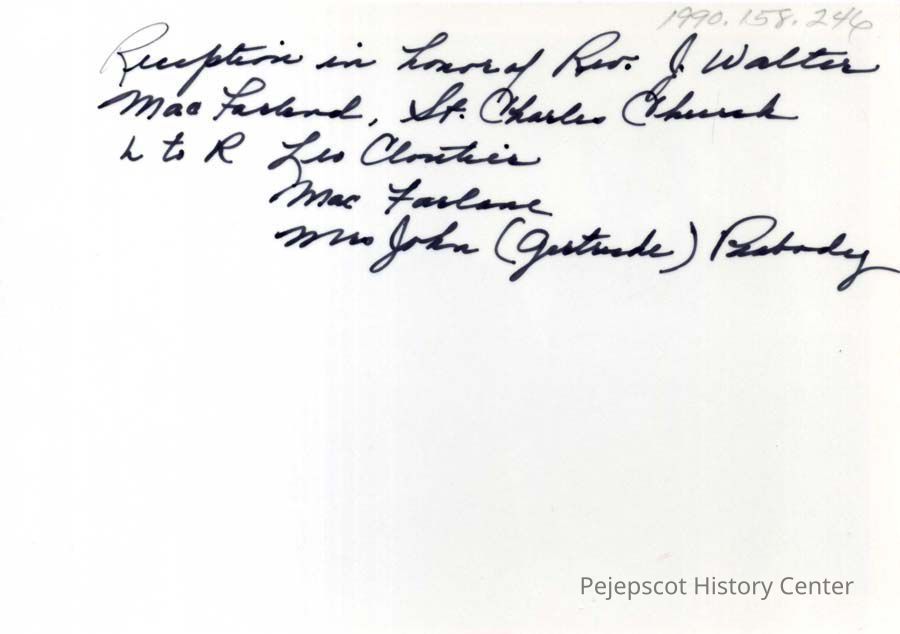 1990.158.246
Reception in honor of Rev. J. Walter
Mac Farland, St. Charles Church
L to R Leo Cloutier
Mac Farlane
Mrs John (Gertrude) Peabody
Pejepscot History Center